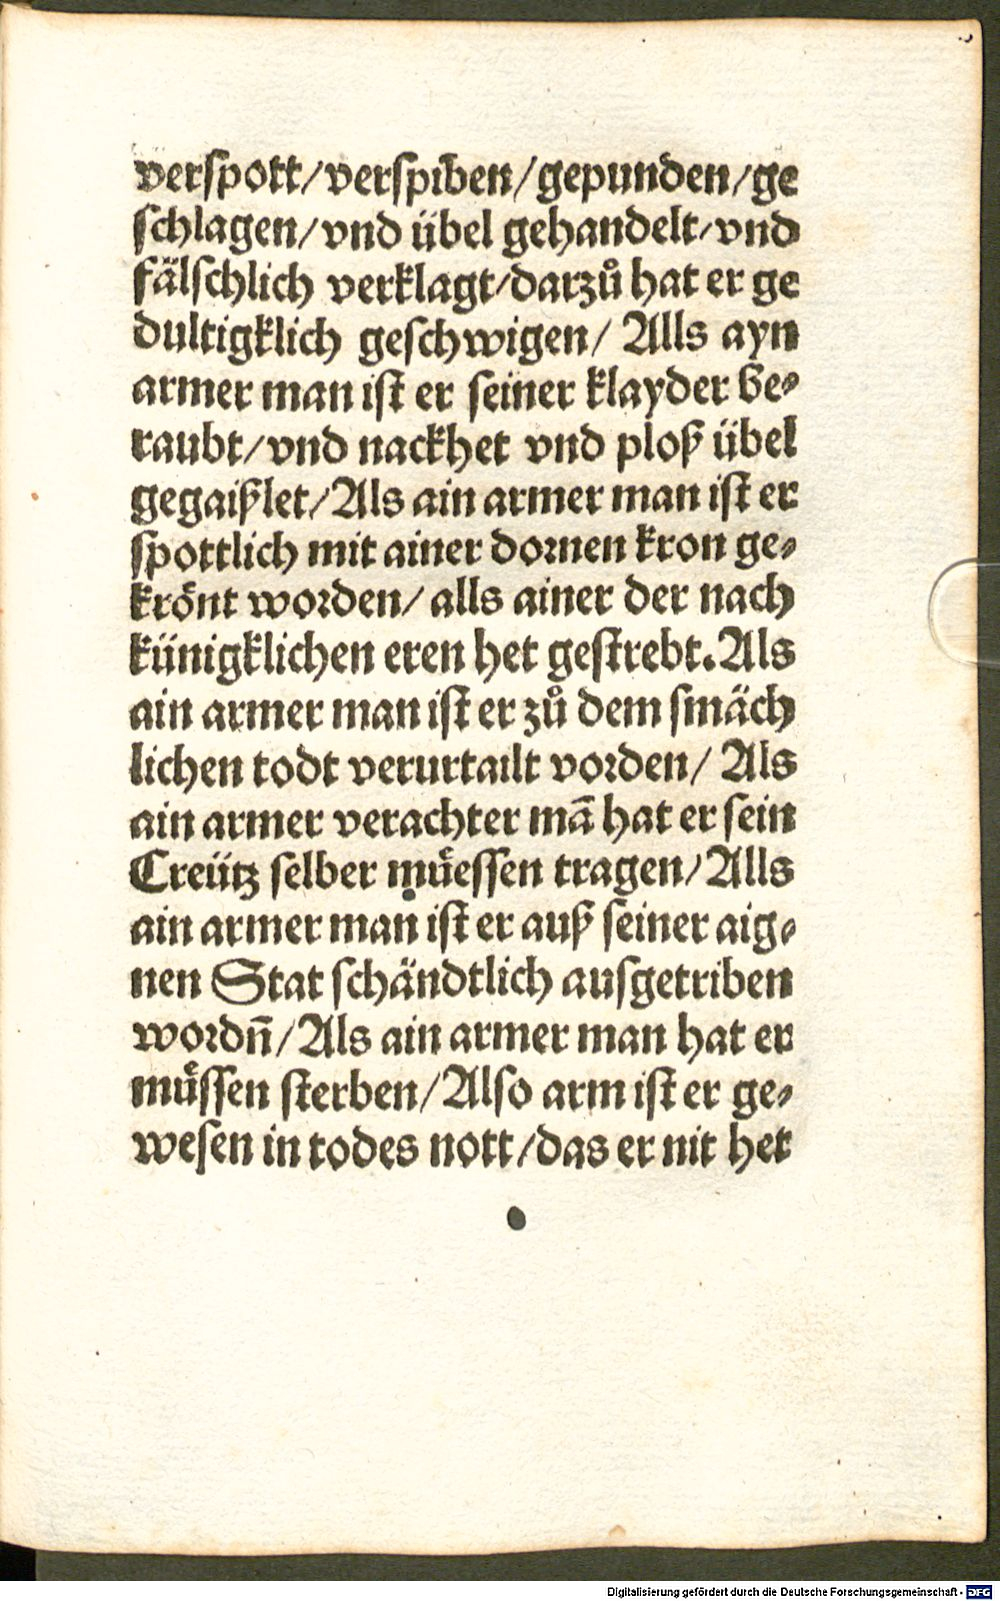 verspott/verspiben/gepunden/ge
schlagen/vnd übel gehandelt/vnd
fälschlich verklagt/darzů hat er ge
dultigklich geschwigen/ Alls ayn
armer man ist er seiner klayder be⸗
raubt/vnd nackhet vnd ploß übel
gegaißlet/Als ain armer man ist er
spottlich mit ainer dornen kron ge⸗
krönt worden/ alls ainer der nach
künigklichen eren het gestrebt.Als
ain armer man ist er zů dem smäch
lichen todt verurtailt vorden/ Als
ain armer verachter mā hat er sein
Creütz selber müessen tragen/Alls
ain armer man ist er auß seiner aig⸗
nen Stat schändtlich ausgetriben
wordn̄/Als ain armer man hat er
müssen sterben/Also arm ist er ge⸗
wesen in todes nott/das er nit het
Digitalisierung gefördert durch die Deutsche Forschungsgemeinschaft - DFG